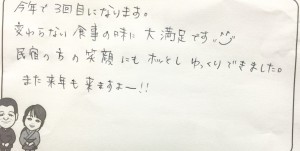 今年で3回目になります。
変わらない食事の時に大満足です。
民宿の方の笑顔にもホッとしゆっくりできました。
また来年も来ますよー!!